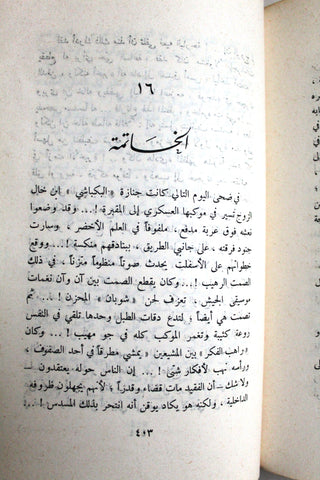 ١٦
الخاتمة
في ضحى اليوم التالي كانت جنازة «البكباشي» ابن خال
الزوج تسير في موكبها العسكري إلى المقبرة !... وقد وضعوا
نعشه فوق عربة مدفع ، ملفوفاً في العلم الأخضر ، وسارت
جنود فرقته ، على جانبي الطريق ، ببنادقهم منكسة !... ووقع
خطواتهم على الأسفلت . يحدث صوتاً منظوماً متزناً ، في ذلك
الصمت الرهيب !... وكان يقطع الصمت بين آن وآن نغمات
موسيقى الجيش ، تعزف لحن «شوبان» المحزن !... ثم
تصمت هي أيضاً ؛ لتدع دقات الطبل وحدها تلقي في النفس
روعة كئيبة وتغمر الموكب كله في جو مهيب !... وكان
«راهب الفكر» بين المشيعين ؛ يمشي مطرقاً في أحد الصفوف ،
ورأسه نهب لأفكار شتى !... إن الناس حوله يعتقدون —
ولا شك — أن الفقيد مات قضاء وقدراً ؛ لأنهم يجهلون ظروفه
الداخلية ، ولكنه هو يكاد يوقن أنه انتحر بذلك المسدس !...
٤٠٣